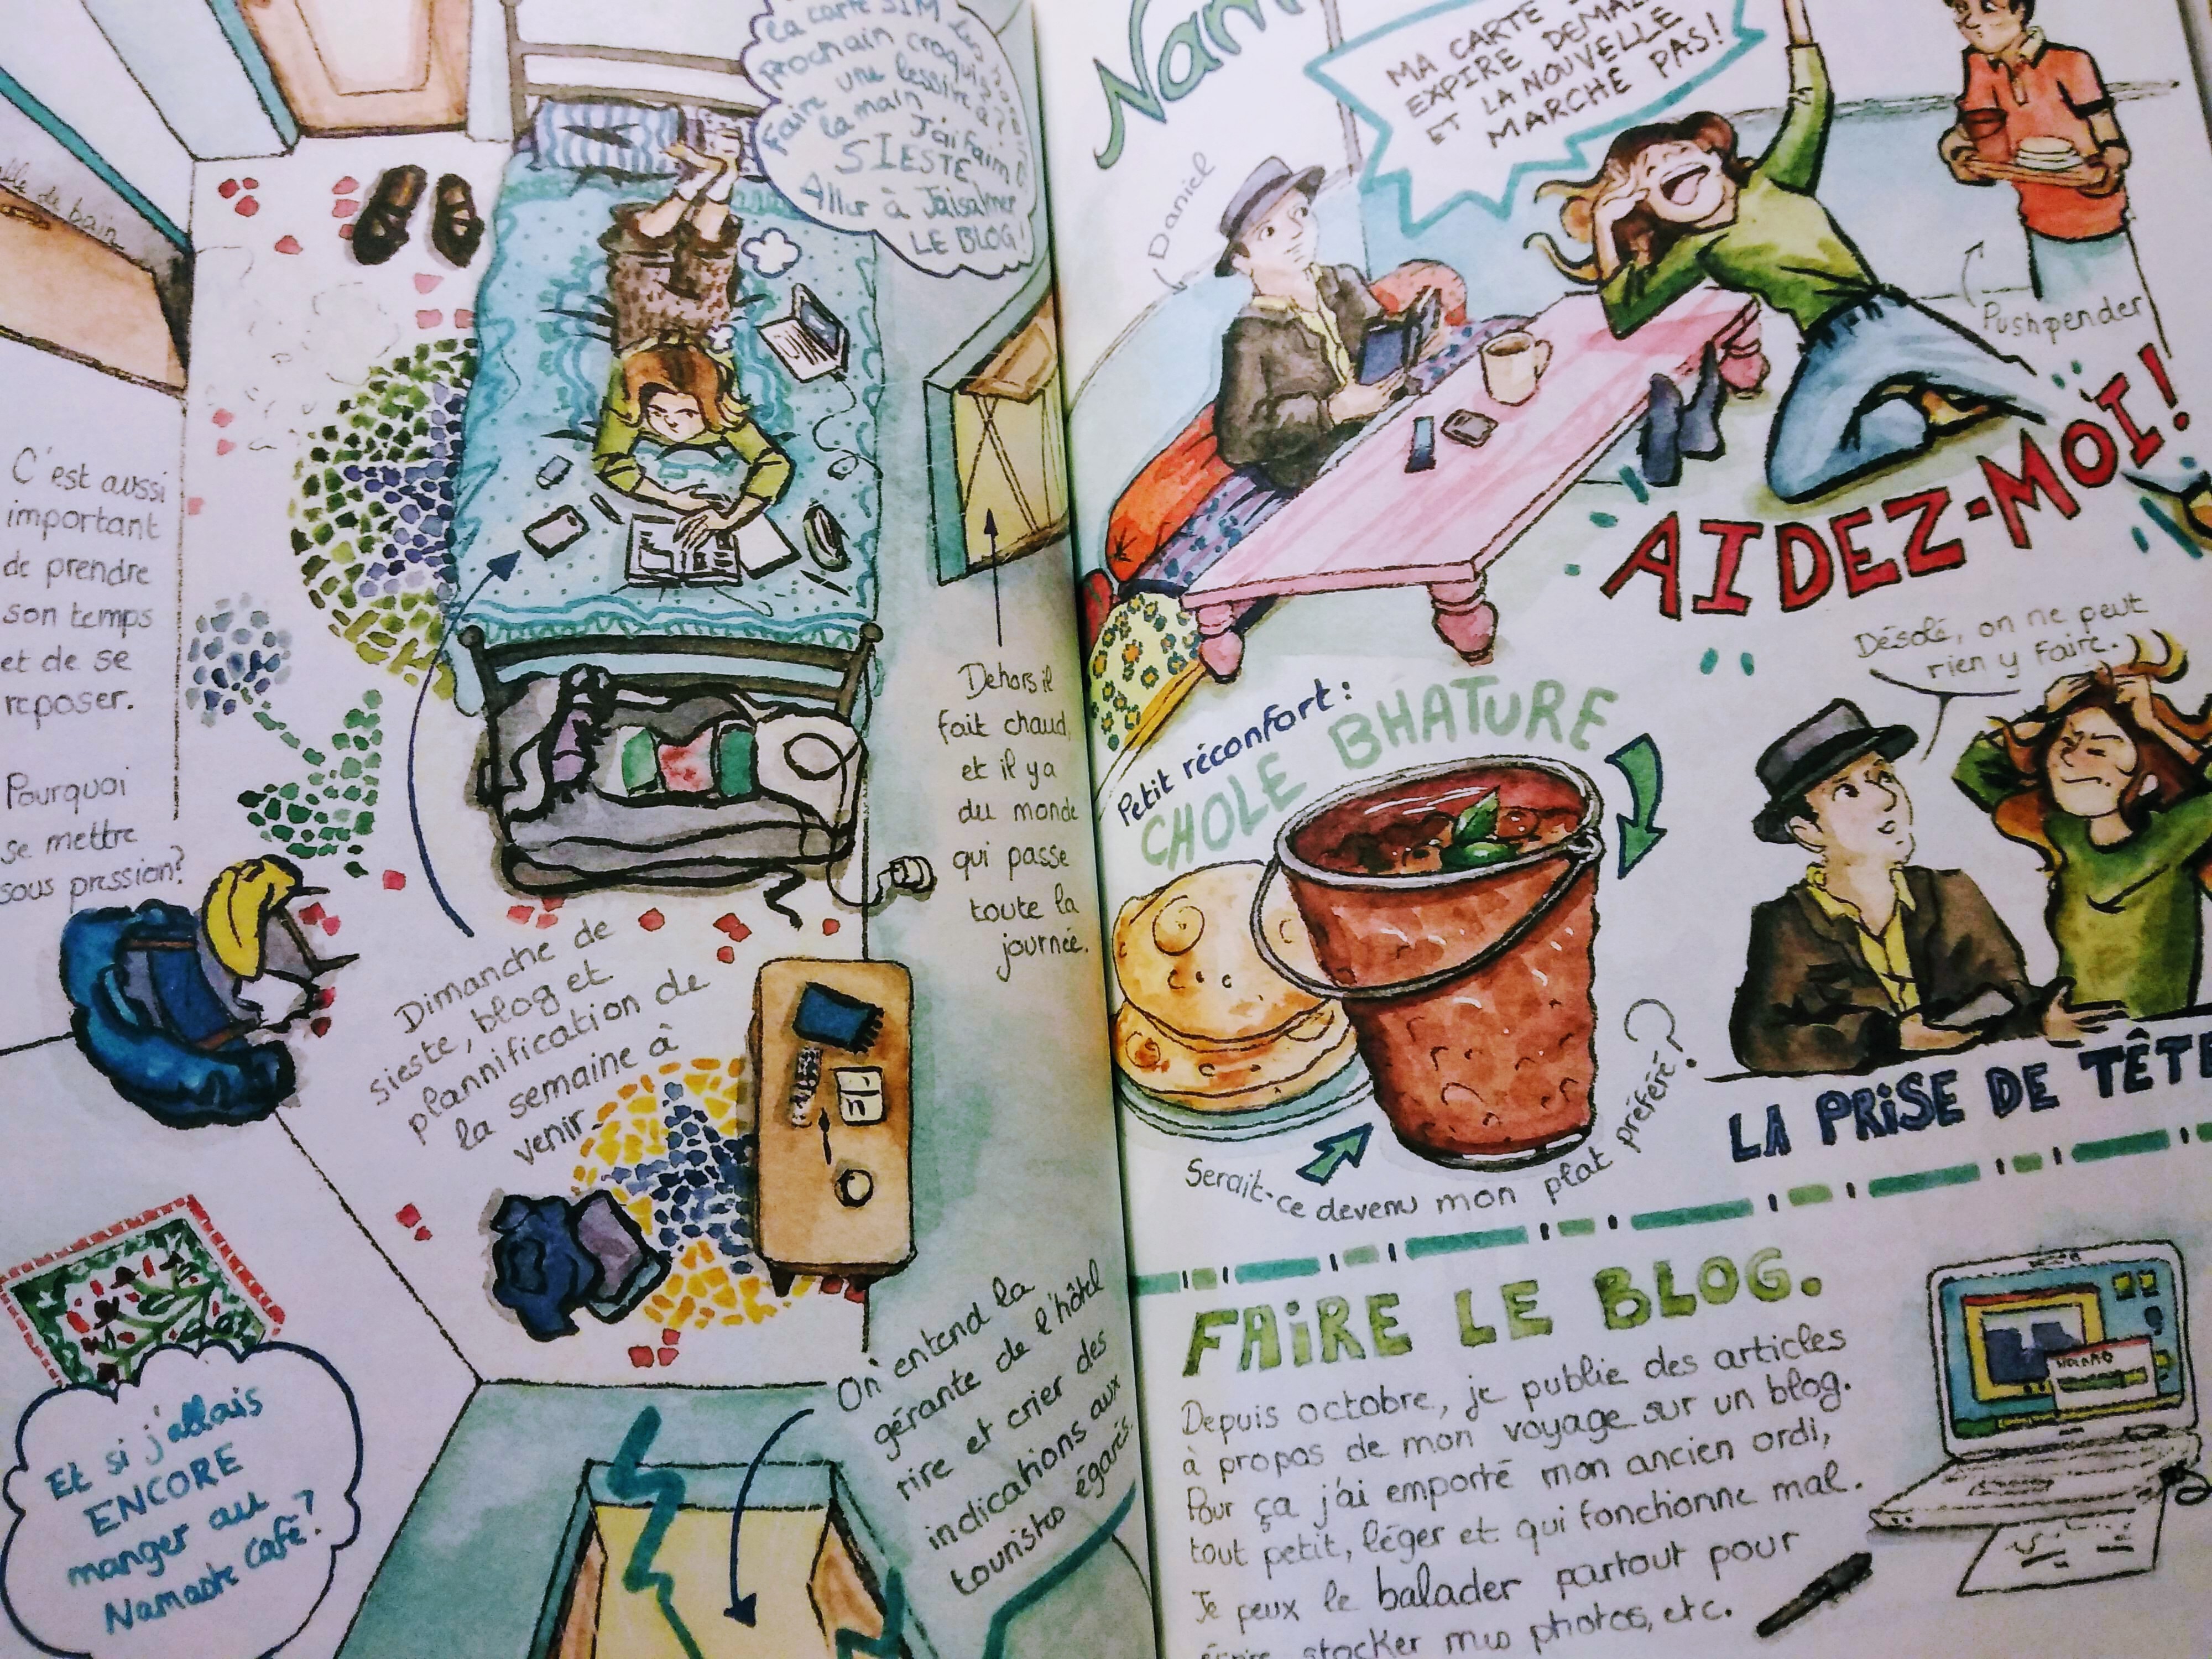 la carte SIM
prochain croquis?
Faire une lessive à
la main?
J'ai faim
SIESTE
Aller à Jaisalmer
LE BLOG!
salle de bain
C'est aussi
important
de prendre
son temps
et de se
reposer.
Pourquoi
se mettre
sous pression?
Dehors il
fait chaud,
et il y a
du monde
qui passe
toute la
journée.
Dimanche de
sieste, blog et
plannification de
la semaine à
venir
On entend la
gérante de l'hôtel
rire et crier des
indications aux
touristes égarés.
Et si j'allais
ENCORE
manger au
Namaste Café?
MA CARTE
EXPIRE DEMAIN
ET LA NOUVELLE
MARCHE PAS!
Daniel
Pushpender
AIDEZ-MOI!
Désolé, on ne peut
rien y faire.
Petit réconfort:
CHOLE BHATURE
Serait-ce devenu mon plat préféré?
LA PRISE DE TÊTE
FAIRE LE BLOG.
Depuis octobre, je publie des articles
à propos de mon voyage sur un blog.
Pour ça j'ai emporté mon ancien ordi,
tout petit, léger et qui fonctionne mal.
Je peux le balader partout pour
écrire, stocker mes photos, etc.